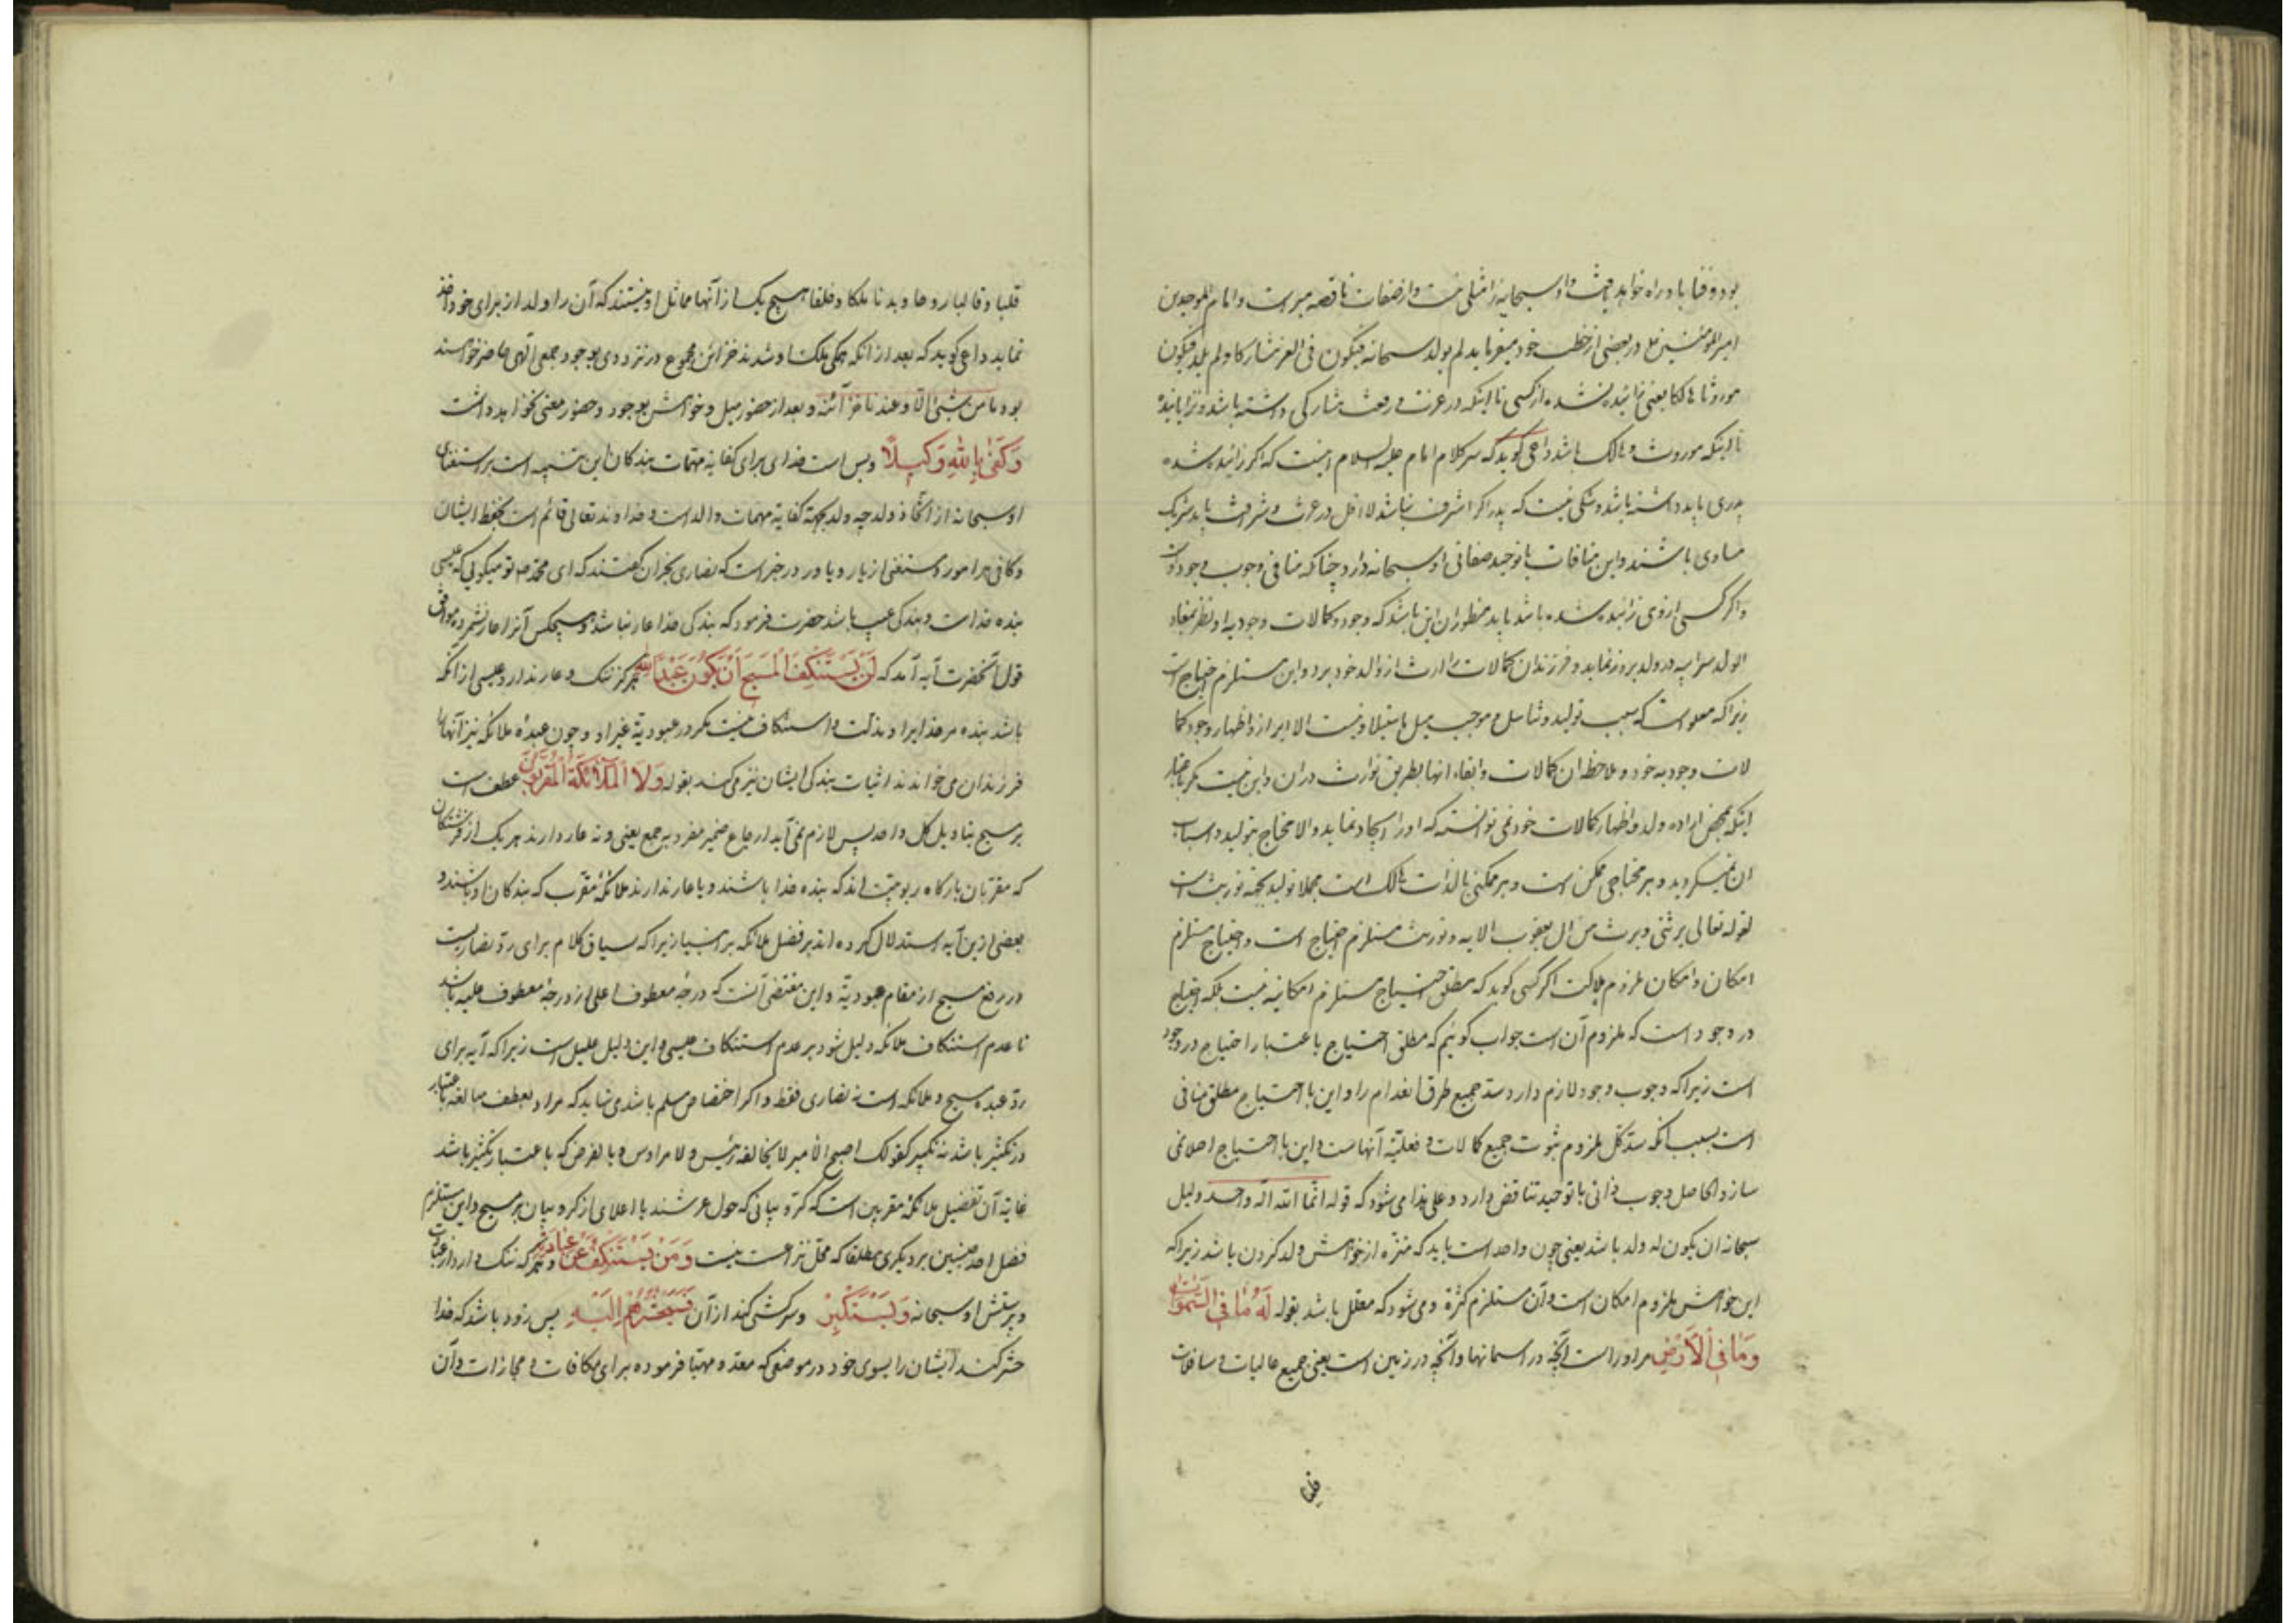 بود و فنا باو راه خواهد یافت و او سبحانه را مثلی نیست و از صفات ناقصه مبراست و امام الموحدین
امیر المومنین ع در بعضی از خطب خود میفرماید لم یولد سبحانه فیکون فی العز مشارکا و لم یلد فیکون
موروثا هالکا یعنی زائیده نشده از کسی تا اینکه در عزت و رفعت مشارکی داشته باشد و نزایانیده
تا اینکه موروث و هالک باشد داعی گوید که سر کلام امام علیه السلام اینست که اگر زائیده شده
پدری باید داشته باشد و شکی نیست که پدر اگر اشرف نباشد لااقل در عزت و شرافت باید شریک
مساوی باشند و این منافات با توحید صفاتی او سبحانه دارد چنانکه منافی وجوب وجود اوست
و اگر کسی از وی زائیده شده باشد باید منظور ازان این باشد که وجود و کمالات وجودیه او نظر بمفاد
الولد سر ابیه در ولد بروز نماید و فرزندان کمالات را ارث از والد خود برد و این مستلزم احتیاج است
زیرا که معلو است که سبب تولید و تناسل و موجب میل باستیلاد نیست الا ابراز و اظهار وجود کما
لات وجودیه خود و ملاحظه ان کمالات و ابقاء انها بطریق توارث دران و این نیست مگر باعتبار
اینکه بمحض اراده ولد و اظهار کمالات خود نمی توانسته که اورا ایجاد نماید و الا محتاج بتولید و اسباب
ان نمیگردید و هر محتاجی ممکن است و هر ممکنی بالذات هالک است مجملا تولید بجهة توریث است
لقوله تعالی یرثنی و یرث من ال یعقوب الایه و توریث مستلزم احتیاج است و احتیاج مستلزم
امکان و امکان ملزوم هلاکت اگر کسی گوید که مطلق احتیاج مستلزم امکانیه نیست بلکه احتیاج
در وجود است که ملزوم آن است جواب گوئیم که مطلق احتیاج باعتبار احتیاج در وجود
است زیرا که وجوب وجود لازم دارد سد جمیع طرق انعدام را و این با احتیاج مطلق منافی
است بسبب انکه سد کل ملزوم ثبوت جمیع کمالات و فعلیة آنهاست و این با احتیاج اصلا نمی
سازد و الحاصل وجوب ذاتی با توحید تناقض دارد و علی هذا می شود که قوله انما الله اله واحد دلیل
سبحانه ان یکون له ولد باشد یعنی چون واحد است باید که منزه از خواهش ولد کردن باشد زیرا که
این خواهش ملزوم امکان است و آن مستلزم کثرة و می شود که معلل باشد بقوله لَهُ مَا فِی السَّمٰوٰاتِ
وَمَا فِی الْاَرْضِ مر اوراست آنچه در اسمانها و آنچه در زمین است یعنی جمیع عالیات و سافلات
قلبا
قلبا و قالبا روحا و بدنا ملکا و خلقا هیچ یک از آنها مماثل او نیستند که آن را ولد از برای خود اخذ
نماید داعی گوید که بعد از انکه همگی ملک او شدند خزائن مجموع در نزد وی بوجود جمعی الهی حاضر خواهند
بود و ما من شیئ الا و عندنا خزآئنه و بعد از حضور میل و خواهش بوجود و حضور معنی نخواهد داشت
وَکَفٰی بِاللّٰهِ وَکِیلاً و بس است خدای برای کفایة مهمات بندگان این تنبیه است بر استغنای
او سبحانه از اتخاذ ولد چه ولد بجهة کفایة مهمات والد است و خداوند تعالی قائم است بحفظ ایشان
و کافی هر امور و مستغنی از یار و یاور در خبر است که نصاری نجران گفتند که ای محمد ص تو میگوئی که عیسی
بنده خداست و بندگی عیب باشد حضرت فرمود که بندگی خدا عار نباشد و هیچکس آنرا عار نشمرده موافق
قول آنحضرت آیه آمد که لَنْ یَسْتَنْکِفَ الْمَسِیحُ اَنْ یَکُونَ عَبْداً لِلّٰهِ هرگز ننگ و عار ندارد عیسی از آنکه
باشد بنده مر خدایرا و مذلت و استنکاف نیست مگر در عبودیة غیر او و چون عبده ملائکه نیز آنها را
فرزندان می خواندند اثبات بندگی ایشان نیز می کند بقوله وَلاَ الْمَلاٰئِکَةُ الْمُقَرَّبُونَ عطف است
بر مسیح بتاویل کل واحد پس لازم نمی آید ارجاع ضمیر مفرد بر جمع یعنی و نه عار دارند هر یک از فرشتکان
که مقربان بارگاه ربوبیت اند که بنده خدا باشند و یا عار ندارند ملائکه مقرب که بندگان او باشند و
بعضی ازین آیه استدلال کرده اند بر فضل ملائکه بر انبیا زیرا که سیاق کلام برای رد نصاریست
در رفع مسیح از مقام عبودیة و این مقتضی آنست که درجه معطوف اعلی از درجه معطوف علیه باشد
تا عدم استنکاف ملائکه دلیل شود بر عدم استنکاف عیسی و این دلیل علیل است زیرا که آیه برای
رد عبده مسیح و ملائکه است نه نصاری فقط و اگر اختصاص مسلم باشد می شاید که مراد بعطف مبالغه باعتبار
در تکثیر باشد نه تکبیر کقولک اصبح الامیر لا یخالفه رئیس و لا مرؤس و بالفرض که باعتبار تکبیر باشد
غایة آن تفضیل ملائکه مقربین است که کروبیانی که حول عرشند یا اعلای از کروبیان بر مسیح و این مستلزم
فضل احد جنسین بر دیگری مطلقا که محل نزاعست نیست وَمَنْ یَسْتَنْکِفْ عَنْ عِبَادَتِهِ و هر که ننگ دارد از عبادت
و پرستش او سبحانه وَیَسْتَکْبِرْ و سرکشی کند از آن فَسَیَحْشُرُهُمْ اِلَیْهِ پس زود باشد که خدا
حشر کند ایشان را بسوی خود در موضعی که معد و مهیا فرموده برای مکافات و مجازات و آن